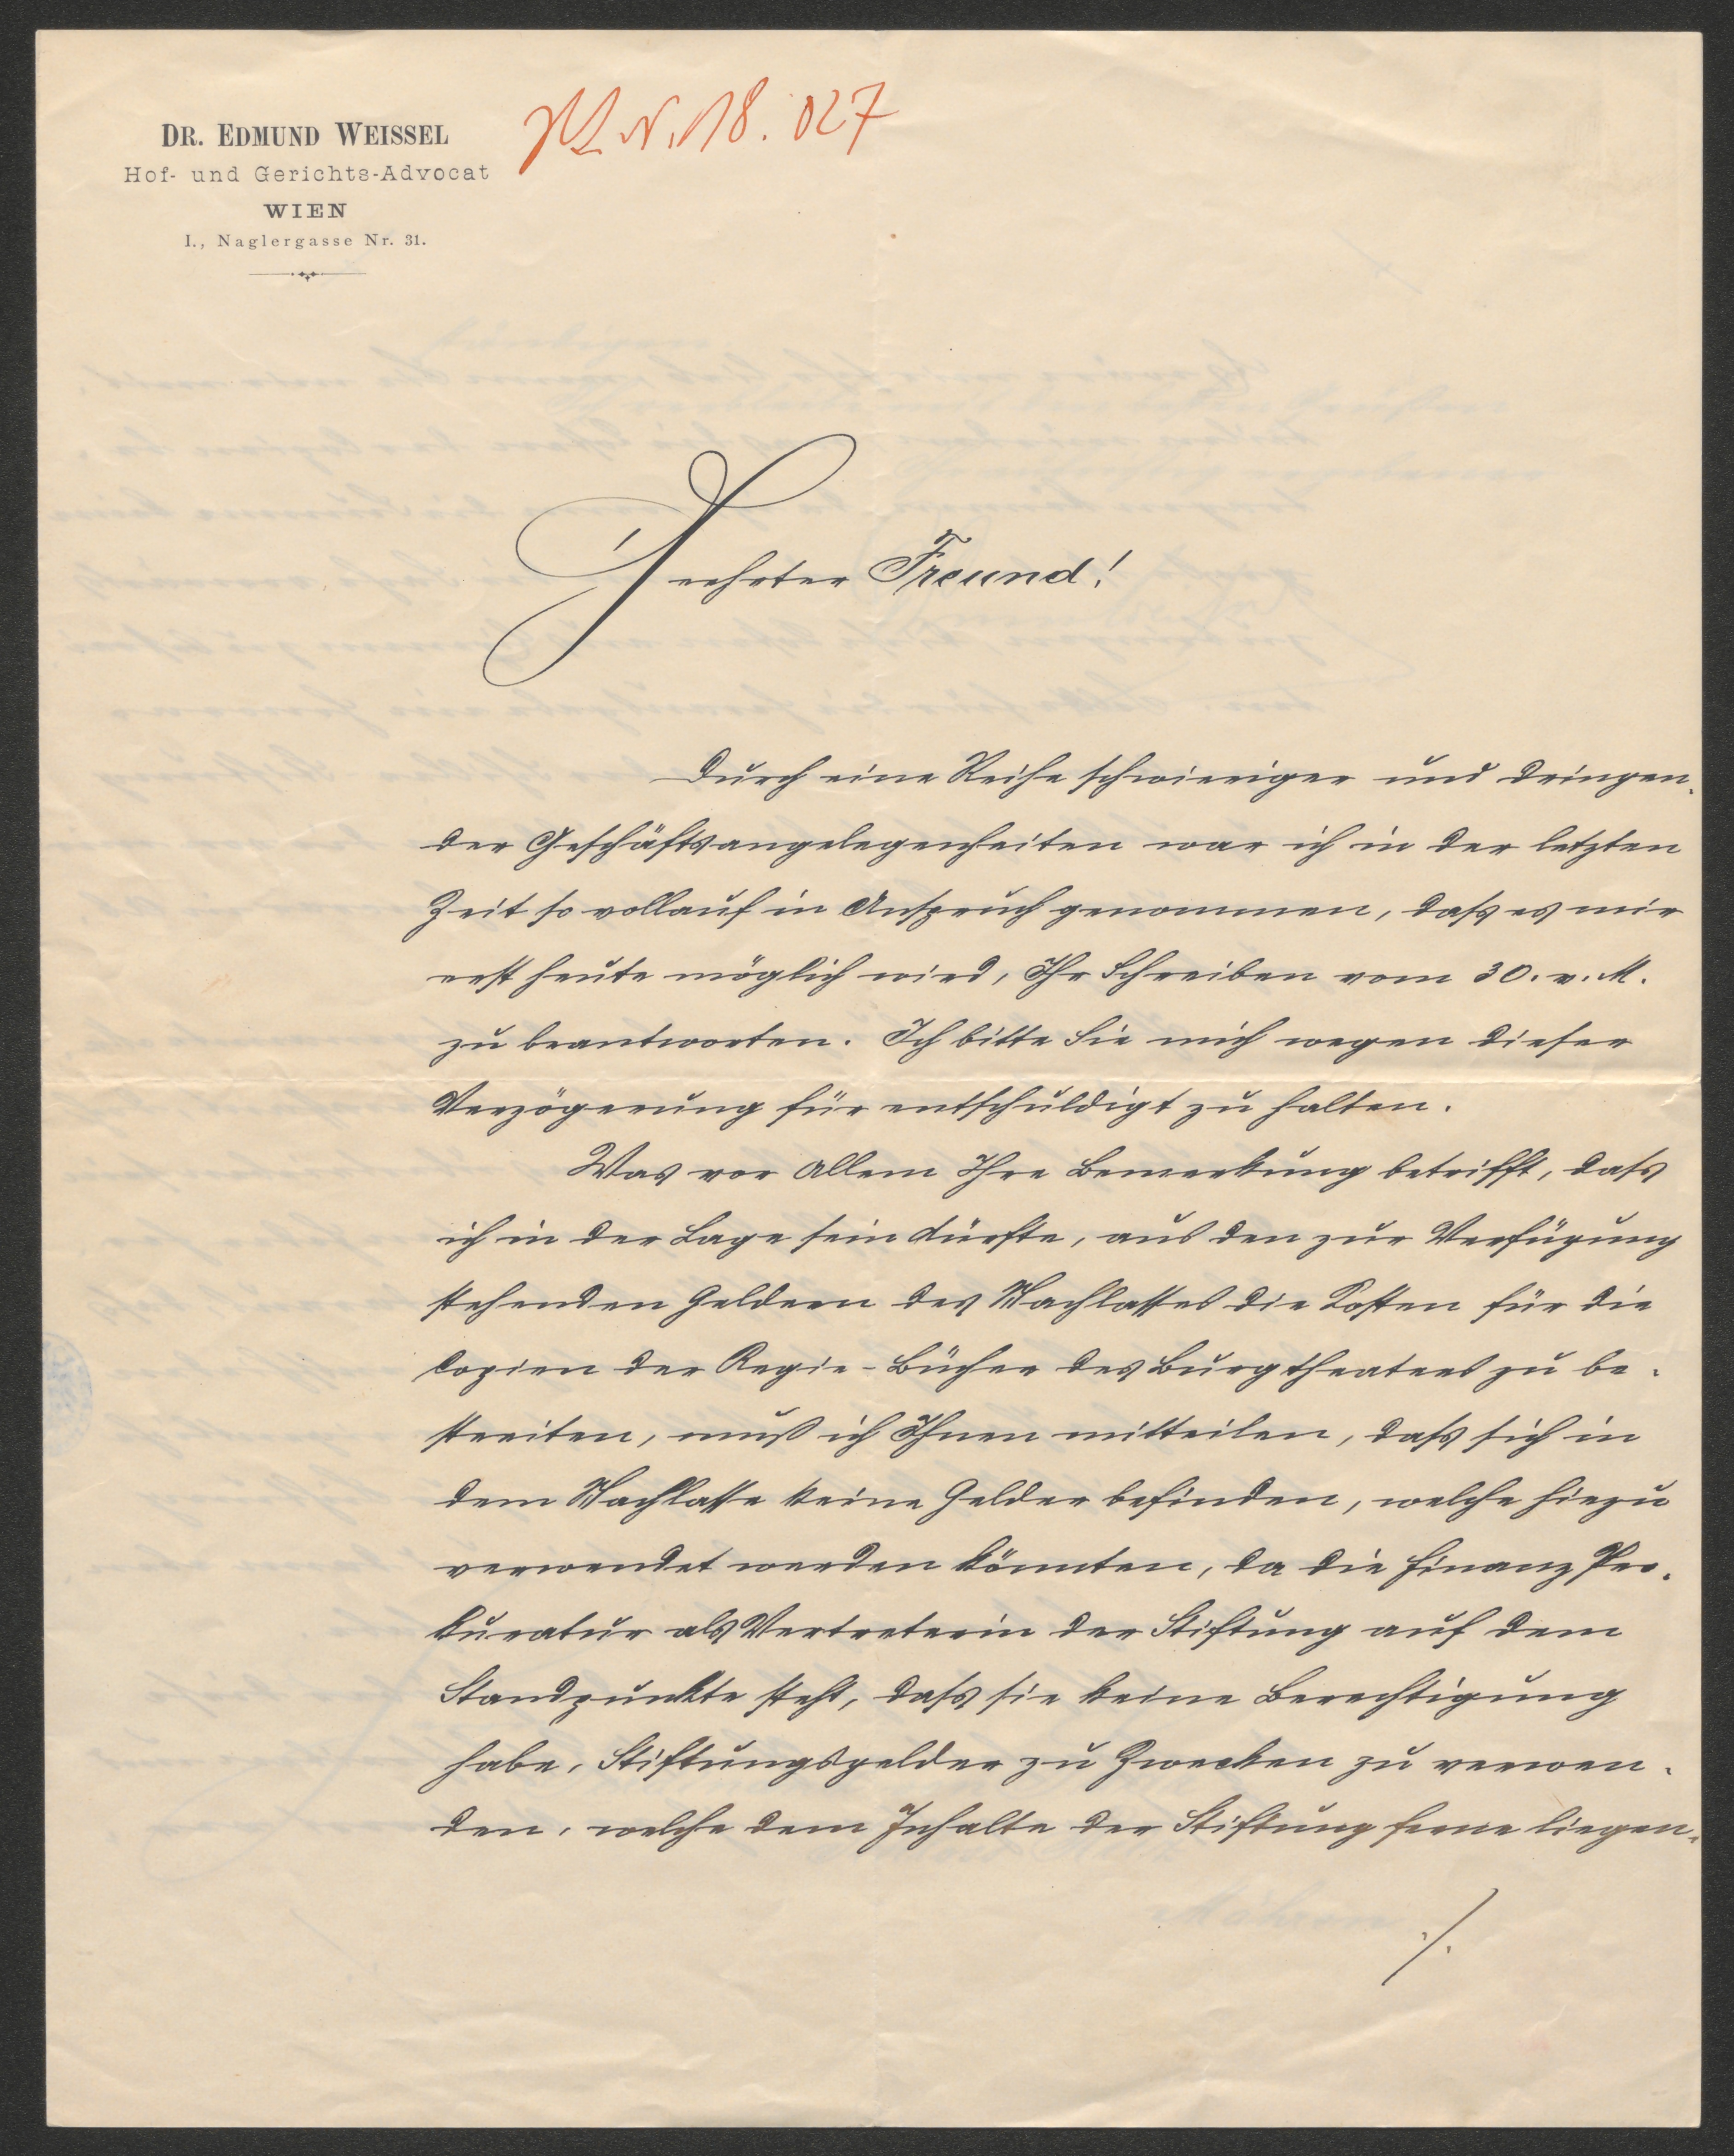 DR. EDMUND WEISSEL
Hof- und Gerichts-Advocat
WIEN
I., Naglergasse Nr. 31.
N. 18.027
Geehrter Freund!
Durch eine Reihe schwieriger und dringen-
der Geschäftsangelegenheiten war ich in der letzten
Zeit so vollauf in Anspruch genommen, dass es mir
erst heute möglich wird, Ihr Schreiben vom 30. v. M.
zu beantworten. Ich bitte Sie mich wegen dieser
Verzögerung für entschuldigt zu halten.
Was vor Allem Ihre Bemerkung betrifft, dass
ich in der Lage sein dürfte, aus den zur Verfügung
stehenden Geldern des Nachlasses die Kosten für die
Copien der Regie-Bücher des Burgtheaters zu be-
streiten, muß ich Ihnen mitteilen, dass sich in
dem Nachlasse keine Gelder befinden, welche hiezu
verwendet werden könnten, da die Finanz Pro-
kuratur als Vertreterin der Stiftung auf dem
Standpunkte steht, dass sie keine Berechtigung
habe, Stiftungsgelder zu Zwecken zu verwen-
den, welche dem Inhalte der Stiftung ferne liegen.
./.